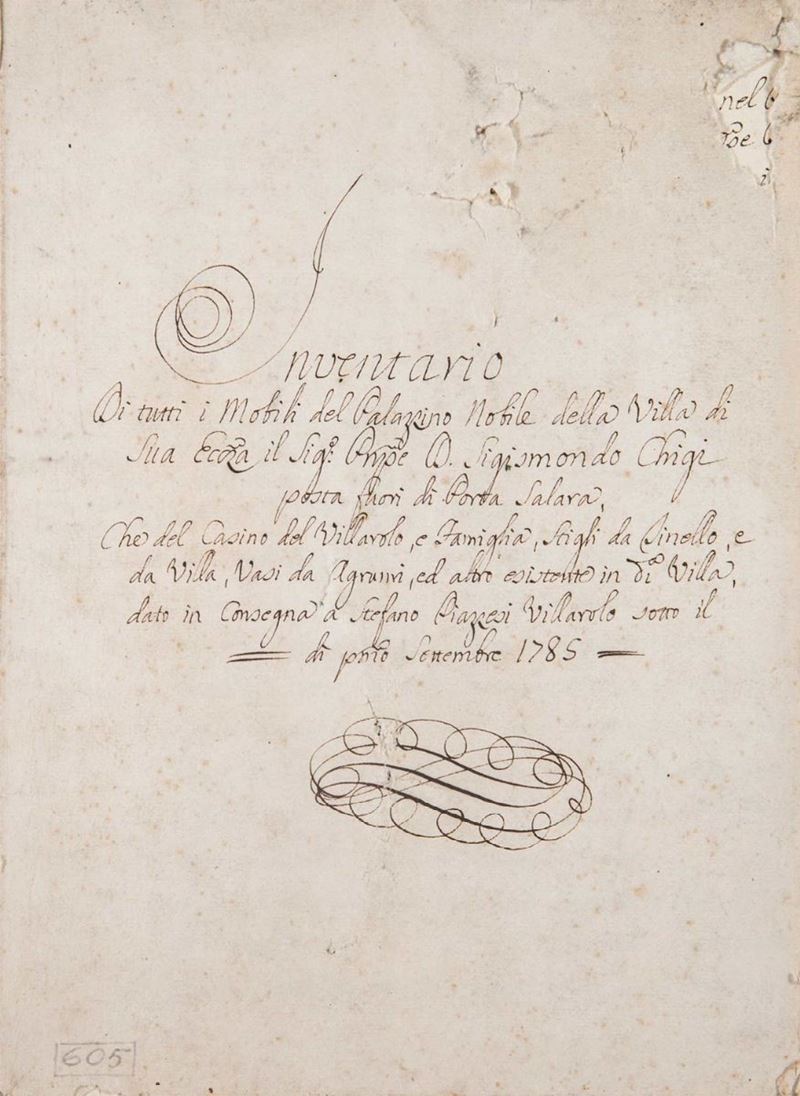 nel 6
Inventario
Di tutti i Mobili del Palazzino Nobile della Villa di
Sua Eccza il Sigr. Prnpe D. Sigismondo Chigi
posta fuori di Porta Salara,
Che del Casino del Villarolo, e Famiglia, Stigli da Tinello, e
da Villa, Vasi da Agrumi, ed altro esistente in Dta. Villa,
dato in Consegna a Stefano Piazzesi Villarolo sotto il
di pmo Settembre 1785
605